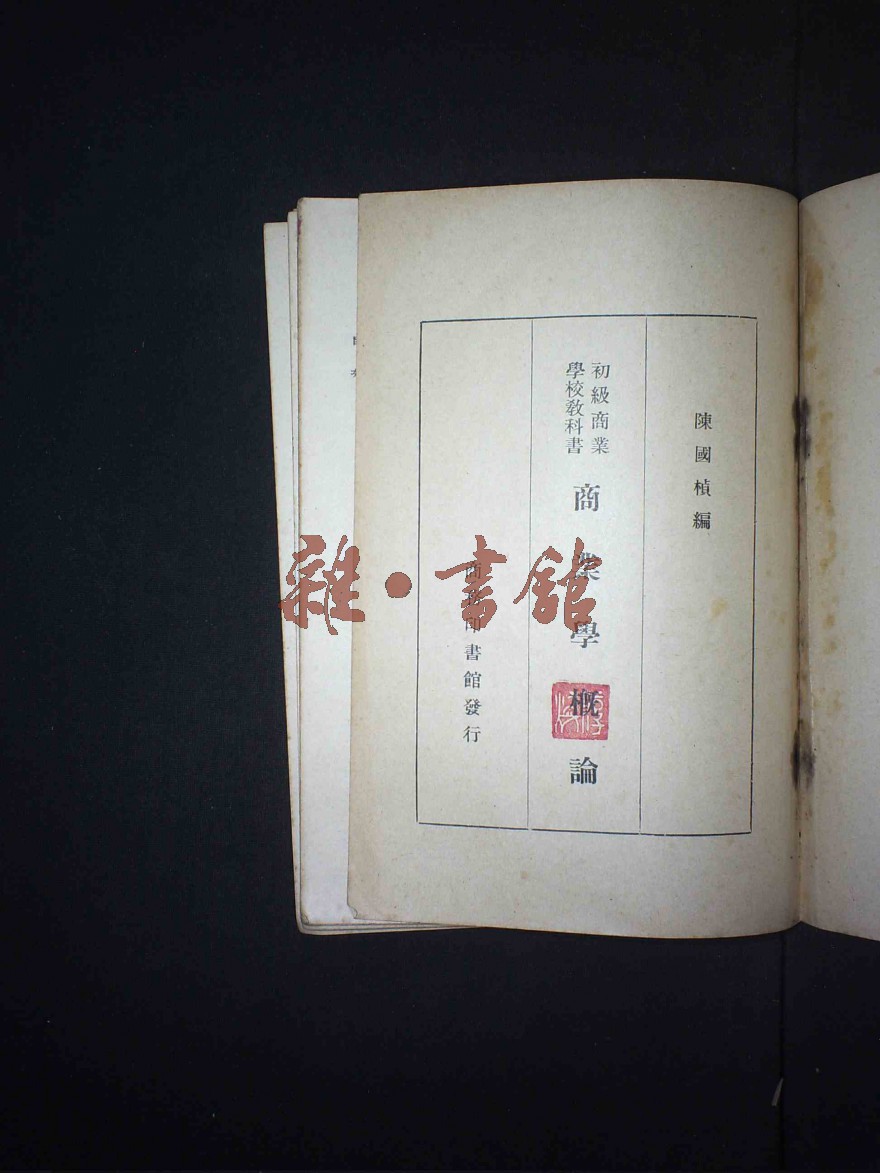 陳國楨編
初級商業
學校敎科書
商業學概論
商務印書館發行
雜·書館